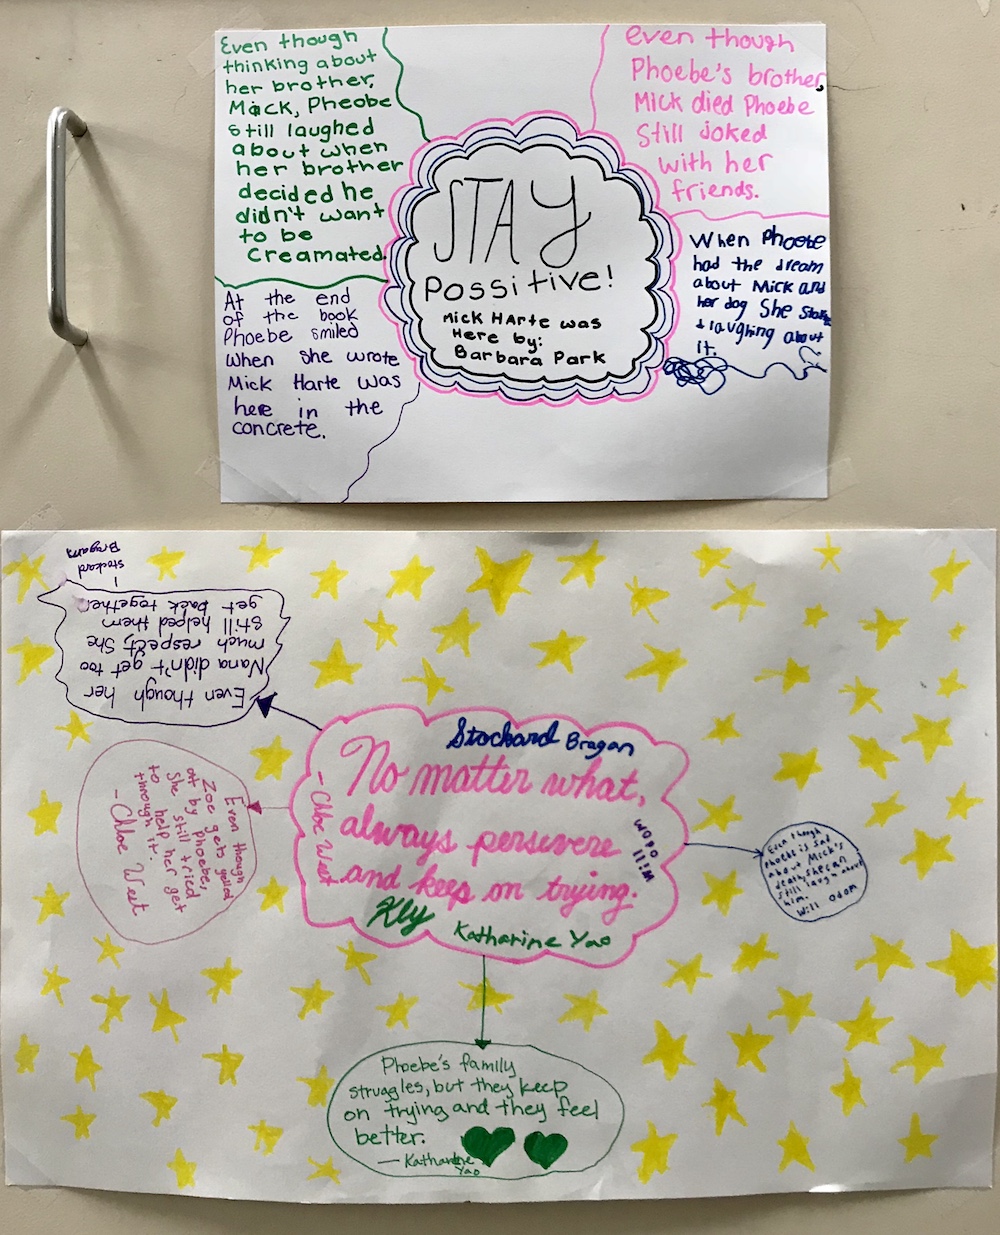 Even though
thinking about
her brother,
Mick, Pheobe
still laughed
about when
her brother
decided he
didn't want
to be
Creamated.
even though
Phoebe's brother,
Mick died Phoebe
Still joked
with her
friends.
STAY
Possitive!
Mick Harte was
Here by:
Barbara Park
At the end
of the book
Phoebe smiled
when she wrote
Mick Harte was
here in the
concrete.
When Phoebe
had the dream
about Mick and
her dog She
laughing about
it.
Even though her
Nana didn't get too
much respect, She
still helped them
get back together.
Stockard
Bragan
Stockard Bragan
No matter what,
always persevere
and keep on trying.
- Chloe West
Will
Odom
Kly
Katharine Yao
Even though
Zoe gets yelled
at by Phoebe,
She still tried
to help her get
through it.
- Chloe West
Even though
Phoebe is sad
about Mick's
death, she can
still laugh about
him.
Will Odom
Phoebe's family
struggles, but they keep
on trying and they feel
better.
— Katharine
Yao